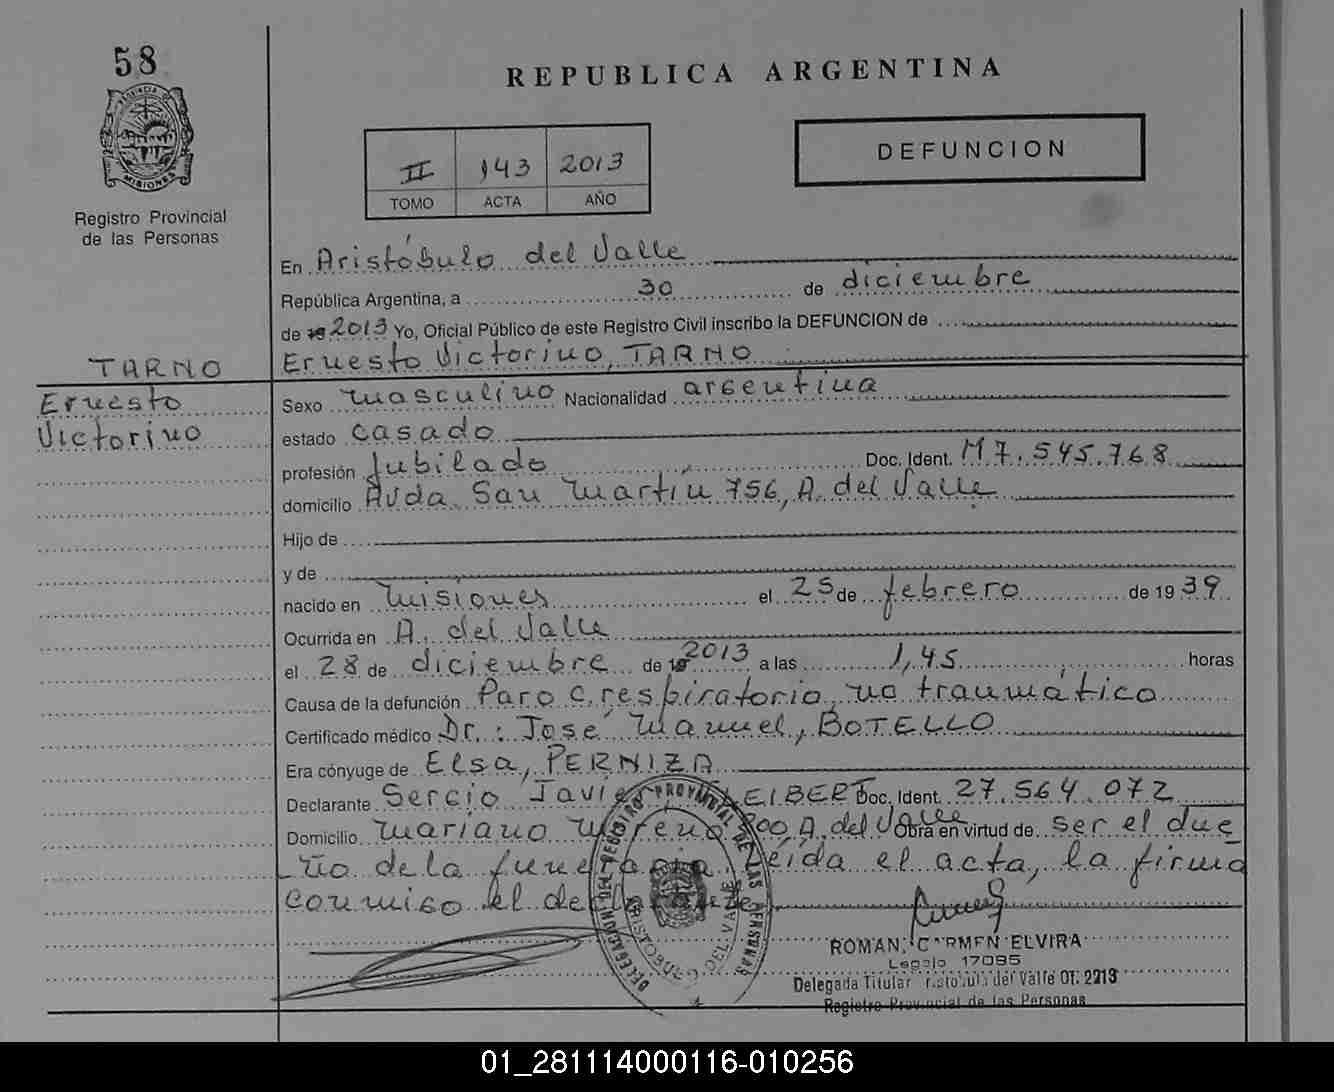 58
REPUBLICA ARGENTINA
PROVINCIA DE
MISIONES
II 143 2013
TOMO ACTA AÑO
DEFUNCION
Registro Provincial
de las Personas
En Aristóbulo del Valle
República Argentina, a 30 de diciembre
de 19 2013 Yo, Oficial Público de este Registro Civil inscribo la DEFUNCION de
TARNO
Ernesto Victorino, TARNO
Ernesto
Victorino
Sexo masculino Nacionalidad argentina
estado casado
profesión Jubilado Doc. Ident. M 7.545.768
domicilio Avda. San Martín 756, A. del Valle
Hijo de
y de
nacido en Misiones el 25 de febrero de 1939
Ocurrida en A. del Valle
el 28 de diciembre de 19 2013 a las 1,45 horas
Causa de la defunción Paro c. respiratorio, no traumático
Certificado médico Dr.: José Manuel, BOTELLO
Era cónyuge de Elsa, PERNIZA
Declarante Sergio Javier Doc. Ident. 27.564.072
Domicilio Mariano Moreno 900 A. del Valle Obra en virtud de ser el due
ño de la funeraria leída el acta, la firma
conmigo el declarante.
DELEGACION DEL REGISTRO PROVINCIAL DE LAS PERSONAS
ARISTOBULO DEL VALLE
ROMAN, CARMEN ELVIRA
Legajo 17095
Delegada Titular Aristobulo del Valle Of. 2213
Registro Provincial de las Personas
01_281114000116-010256